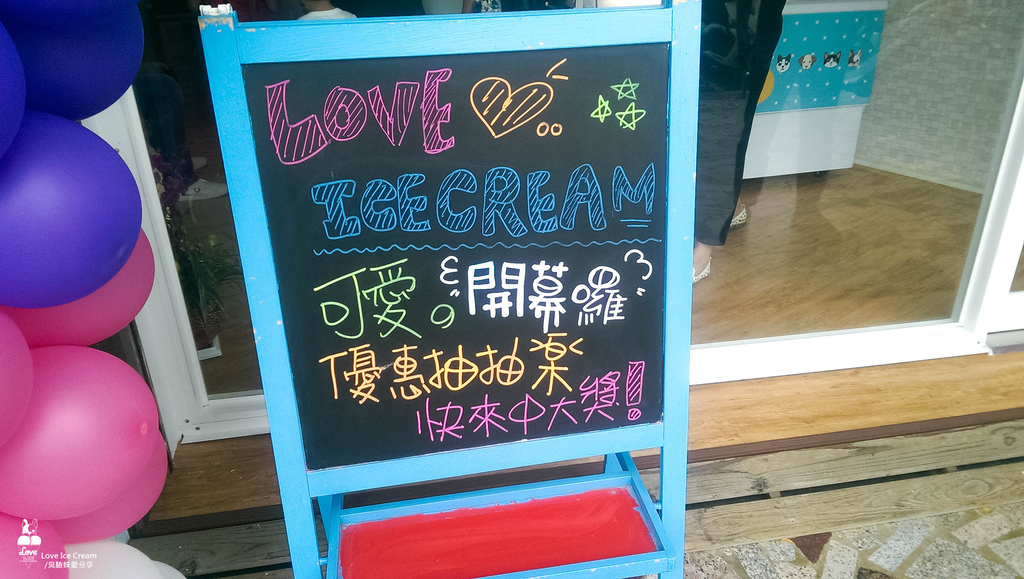 LOVE
ICECREAM
可愛。開幕囉
優惠抽抽楽
快來中大獎!
Love
Love Ice Cream
/吳臉妹愛分享